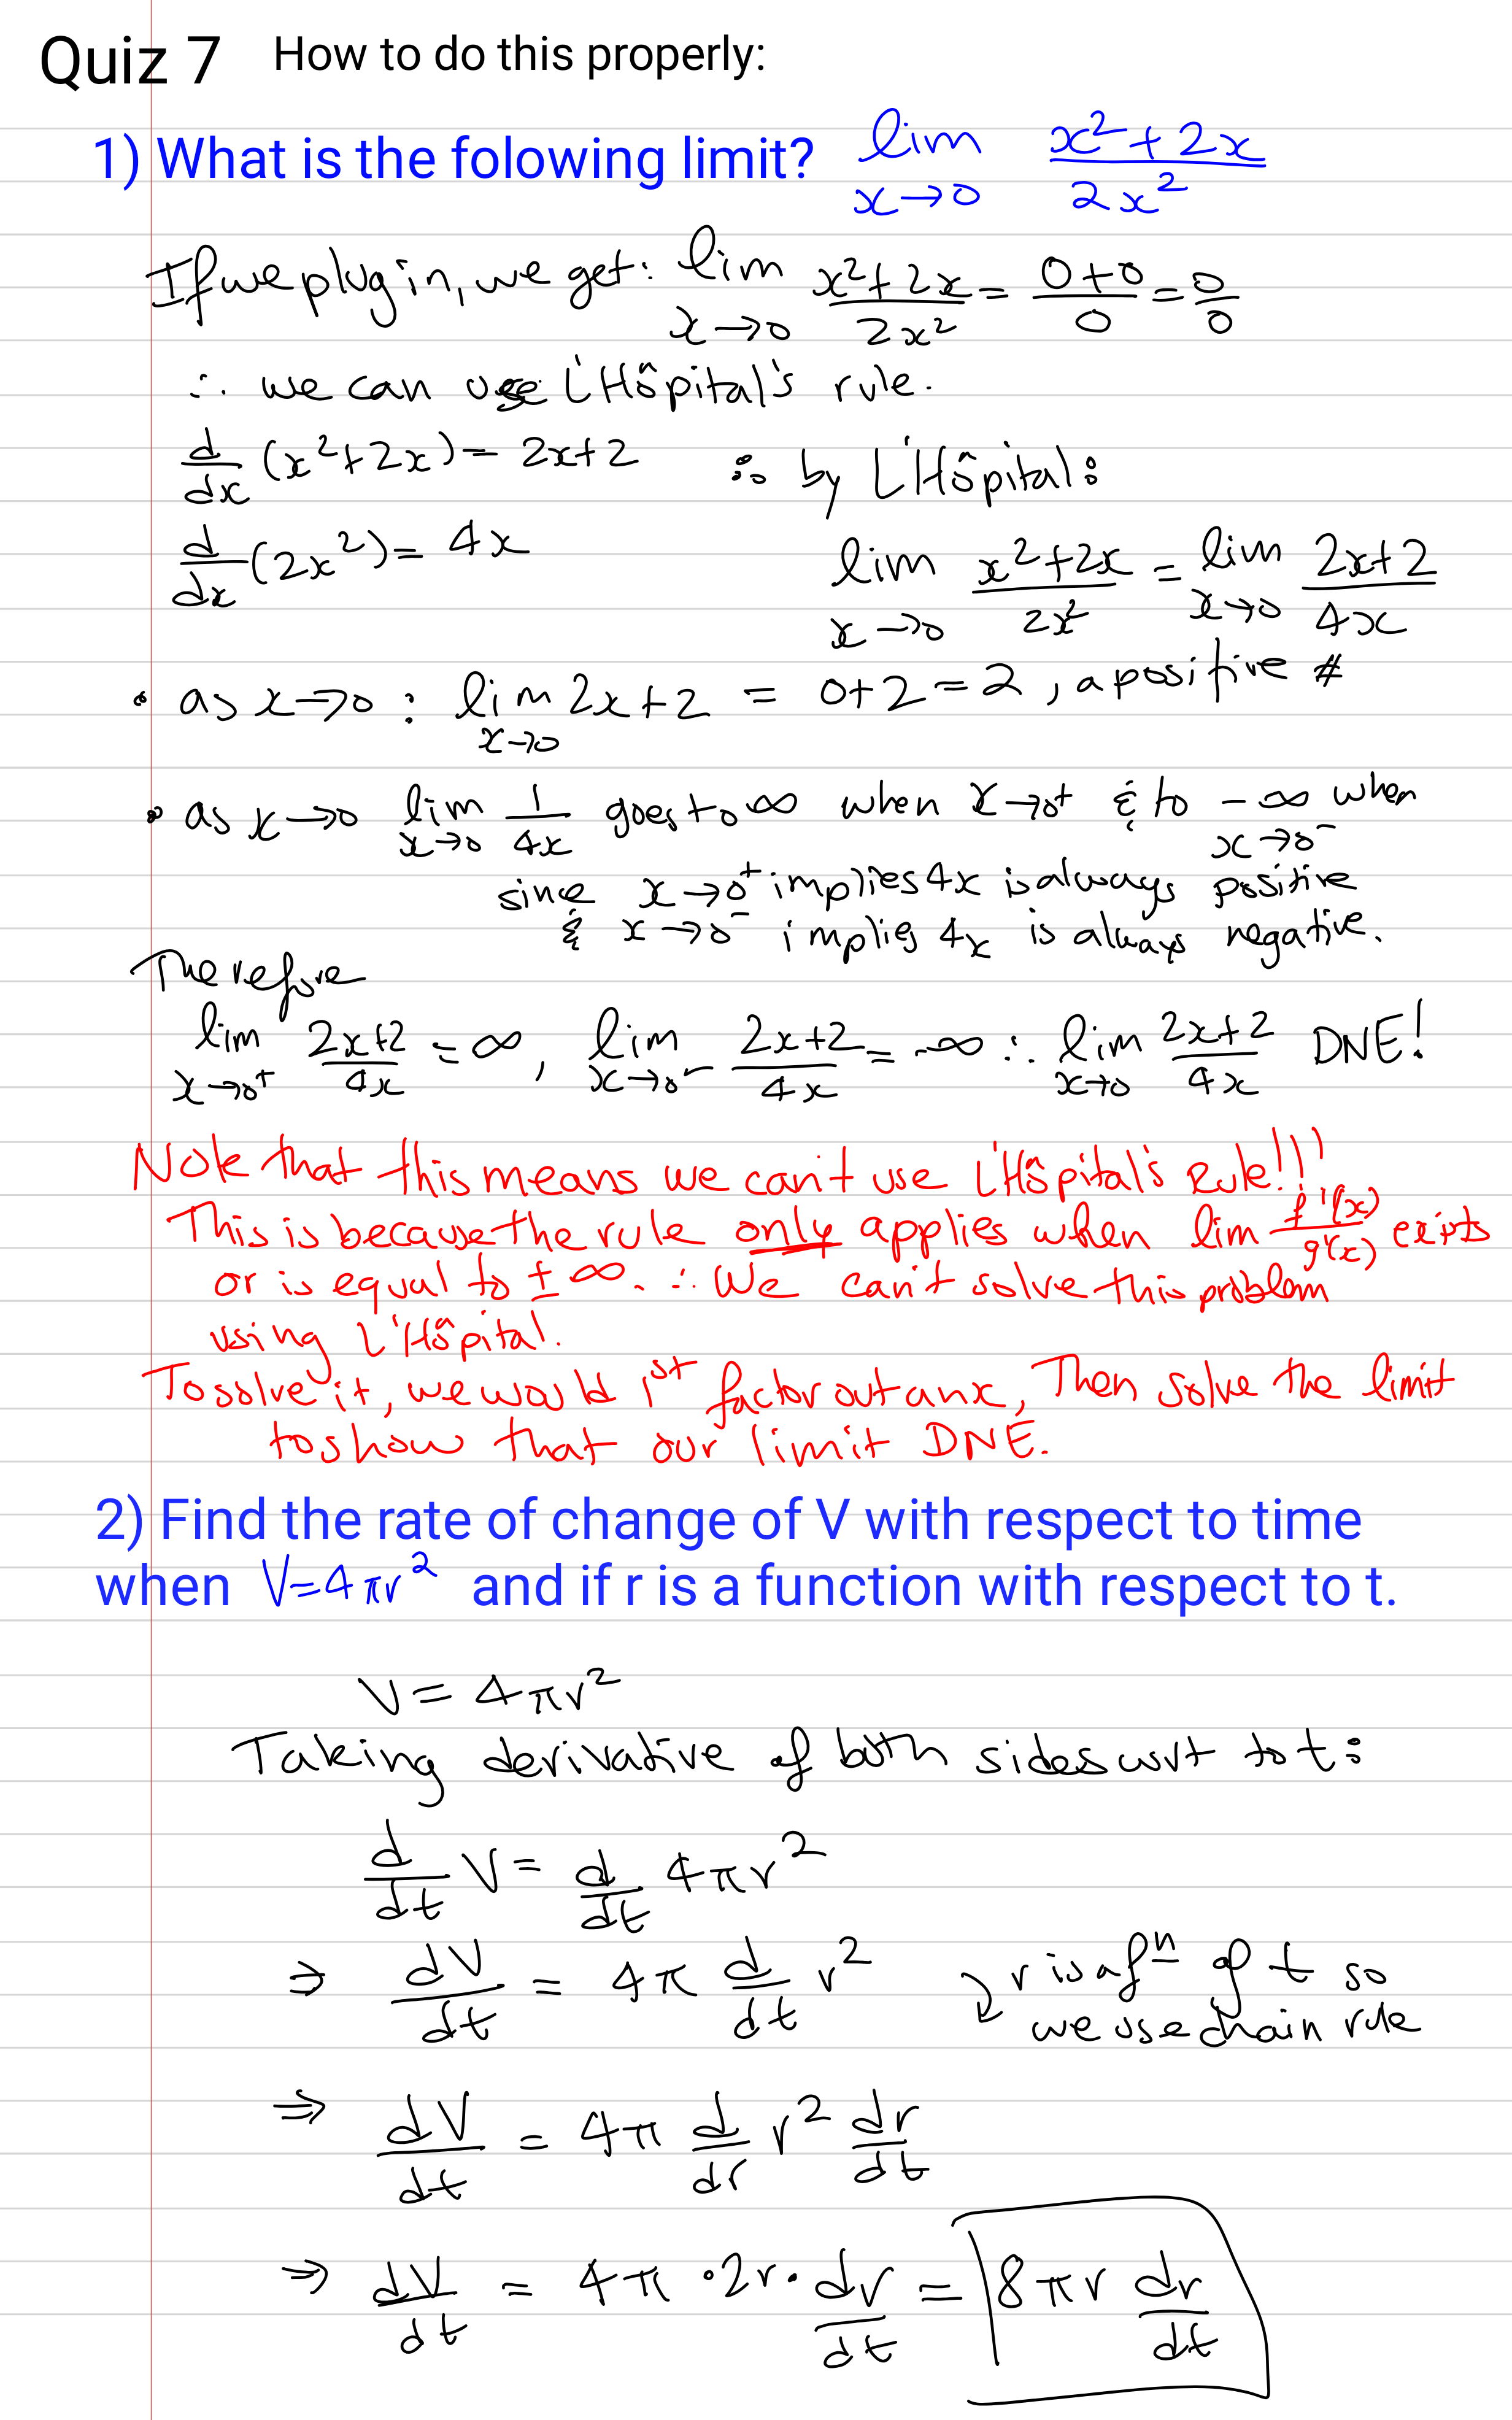 Quiz 7 How to do this properly:
1) What is the folowing limit? lim x→0 (x²+2x)/(2x²)
If we plug in, we get: lim x→0 (x²+2x)/(2x²) = (0+0)/0 = 0/0
∴ we can use L'Hôpital's rule.
d/dx (x²+2x) = 2x+2 ∴ by L'Hôpital:
d/dx (2x²) = 4x lim x→0 (x²+2x)/(2x²) = lim x→0 (2x+2)/(4x)
• as x→0 : lim x→0 2x+2 = 0+2 = 2, a positive #
• as x→0 lim x→0 1/(4x) goes to ∞ when x→0⁺ & to -∞ when x→0⁻
since x→0⁺ implies 4x is always positive
& x→0⁻ implies 4x is always negative.
Therefore
lim x→0⁺ (2x+2)/(4x) = ∞, lim x→0⁻ (2x+2)/(4x) = -∞ ∴ lim x→0 (2x+2)/(4x) DNE!
Note that this means we can't use L'Hôpital's Rule!!!
This is because the rule only applies when lim f'(x)/g'(x) exists
or is equal to ±∞. ∴ We can't solve this problem
using L'Hôpital.
To solve it, we would 1st factor out an x, Then solve the limit
to show that our limit DNE.
2) Find the rate of change of V with respect to time
when V=4πr² and if r is a function with respect to t.
V = 4πr²
Taking derivative of both sides wrt to t:
d/dt V = d/dt 4πr²
⇒ dV/dt = 4π d/dt r² r is a fⁿ of t so
we use chain rule
⇒ dV/dt = 4π d/dr r² dr/dt
⇒ dV/dt = 4π · 2r · dr/dt = 8πr dr/dt